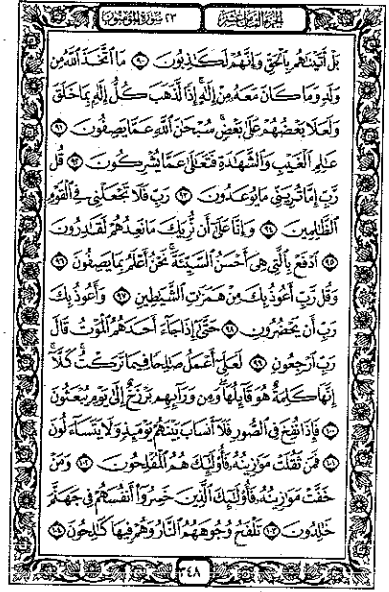 الجزء الثامن عشر
٢٣ سورة المؤمنون
بَلْ أَتَيْنَٰهُم بِٱلْحَقِّ وَإِنَّهُمْ لَكَٰذِبُونَ ٩٠ مَا ٱتَّخَذَ ٱللَّهُ مِن
وَلَدٍ وَمَا كَانَ مَعَهُۥ مِنْ إِلَٰهٍ ۚ إِذًا لَّذَهَبَ كُلُّ إِلَٰهٍۭ بِمَا خَلَقَ
وَلَعَلَا بَعْضُهُمْ عَلَىٰ بَعْضٍ ۚ سُبْحَٰنَ ٱللَّهِ عَمَّا يَصِفُونَ ٩١
عَٰلِمِ ٱلْغَيْبِ وَٱلشَّهَٰدَةِ فَتَعَٰلَىٰ عَمَّا يُشْرِكُونَ ٩٢ قُل
رَّبِّ إِمَّا تُرِيَنِّى مَا يُوعَدُونَ ٩٣ رَبِّ فَلَا تَجْعَلْنِى فِى ٱلْقَوْمِ
ٱلظَّٰلِمِينَ ٩٤ وَإِنَّا عَلَىٰٓ أَن نُّرِيَكَ مَا نَعِدُهُمْ لَقَٰدِرُونَ
٩٥ ٱدْفَعْ بِٱلَّتِى هِىَ أَحْسَنُ ٱلسَّيِّئَةَ ۚ نَحْنُ أَعْلَمُ بِمَا يَصِفُونَ ٩٦
وَقُل رَّبِّ أَعُوذُ بِكَ مِنْ هَمَزَٰتِ ٱلشَّيَٰطِينِ ٩٧ وَأَعُوذُ بِكَ
رَبِّ أَن يَحْضُرُونِ ٩٨ حَتَّىٰٓ إِذَا جَآءَ أَحَدَهُمُ ٱلْمَوْتُ قَالَ
رَبِّ ٱرْجِعُونِ ٩٩ لَعَلِّىٓ أَعْمَلُ صَٰلِحًا فِيمَا تَرَكْتُ ۚ كَلَّآ ۚ
إِنَّهَا كَلِمَةٌ هُوَ قَآئِلُهَا ۖ وَمِن وَرَآئِهِم بَرْزَخٌ إِلَىٰ يَوْمِ يُبْعَثُونَ
١٠٠ فَإِذَا نُفِخَ فِى ٱلصُّورِ فَلَآ أَنسَابَ بَيْنَهُمْ يَوْمَئِذٍ وَلَا يَتَسَآءَلُونَ
١٠١ فَمَن ثَقُلَتْ مَوَٰزِينُهُۥ فَأُو۟لَٰٓئِكَ هُمُ ٱلْمُفْلِحُونَ ١٠٢ وَمَنْ
خَفَّتْ مَوَٰزِينُهُۥ فَأُو۟لَٰٓئِكَ ٱلَّذِينَ خَسِرُوٓا۟ أَنفُسَهُمْ فِى جَهَنَّمَ
خَٰلِدُونَ ١٠٣ تَلْفَحُ وُجُوهَهُمُ ٱلنَّارُ وَهُمْ فِيهَا كَٰلِحُونَ ١٠٤
٣٤٨